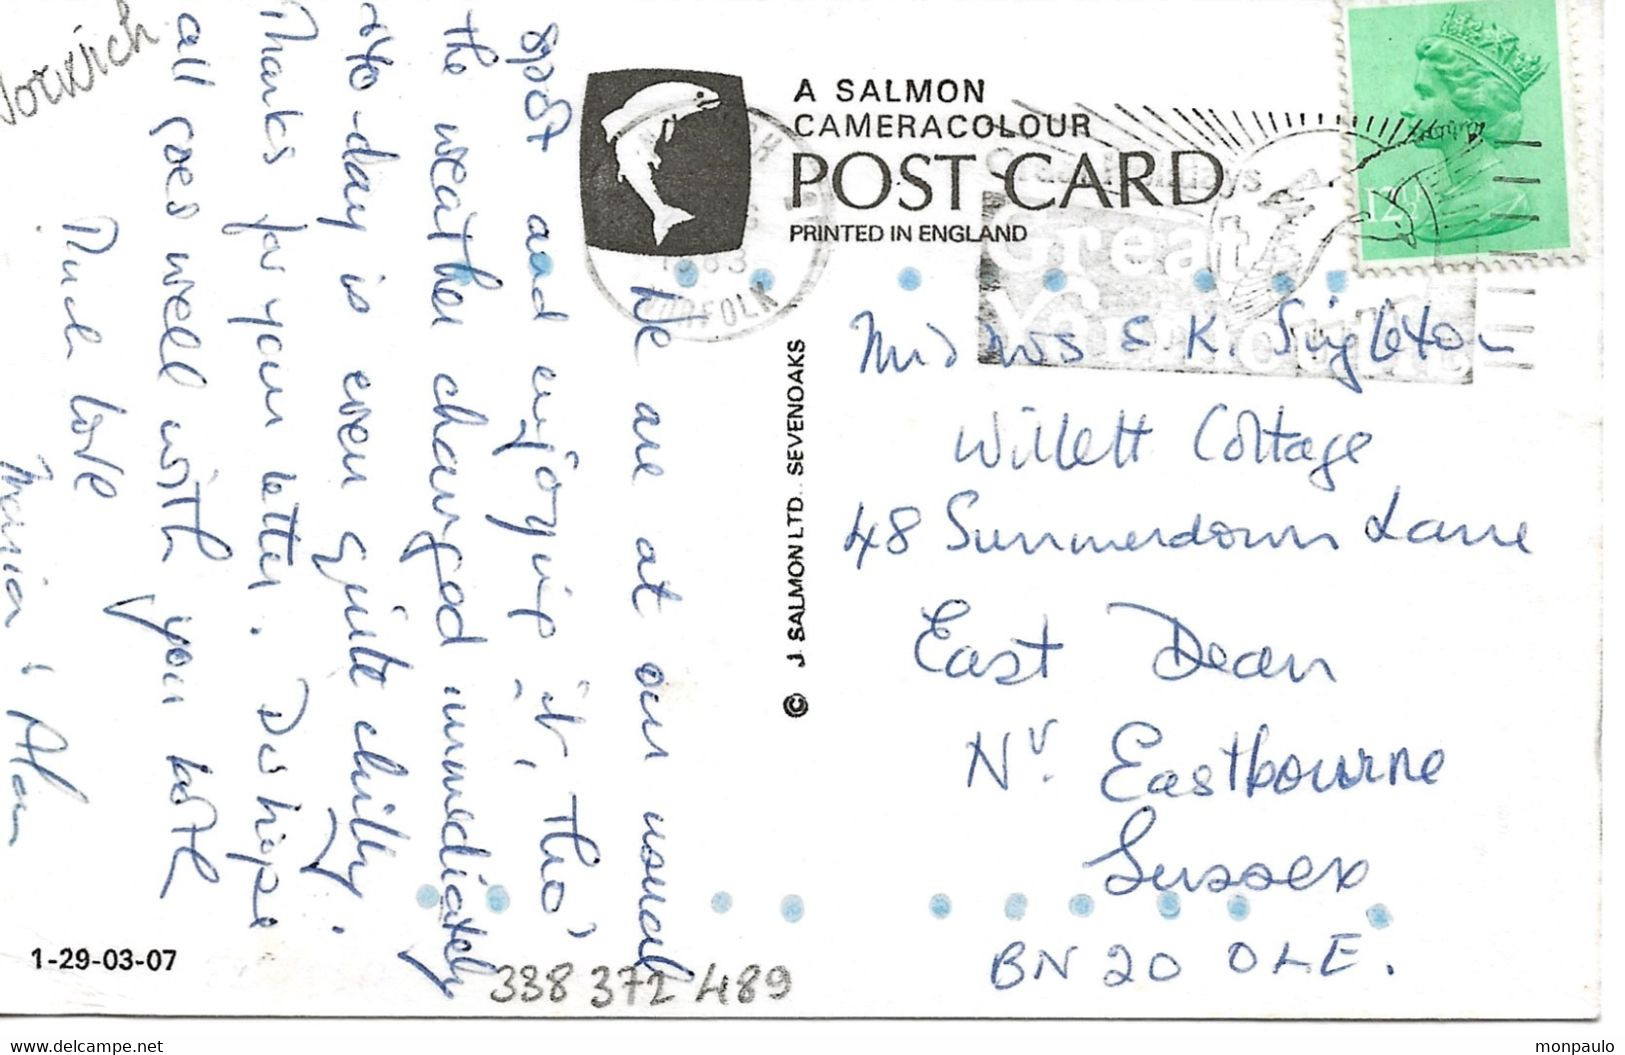 Norwich
We are at our usual
spot and enjoying it, tho'
the weather changed immediately
to-day is even quite chilly.
Thanks for your letter. Do hope
all goes well with you both
Much love
Alan
A SALMON
CAMERACOLOUR
POST CARD
PRINTED IN ENGLAND
1983
NORFOLK
Great
Yarmouth
12½
© J. SALMON LTD. SEVENOAKS
Mr & Mrs S K. Singleton
Willett Cottage
48 Summerdown Lane
East Dean
Nr. Eastbourne
Sussex
BN 20 OLE.
1-29-03-07
338 372 489
www.delcampe.net
monpaulo